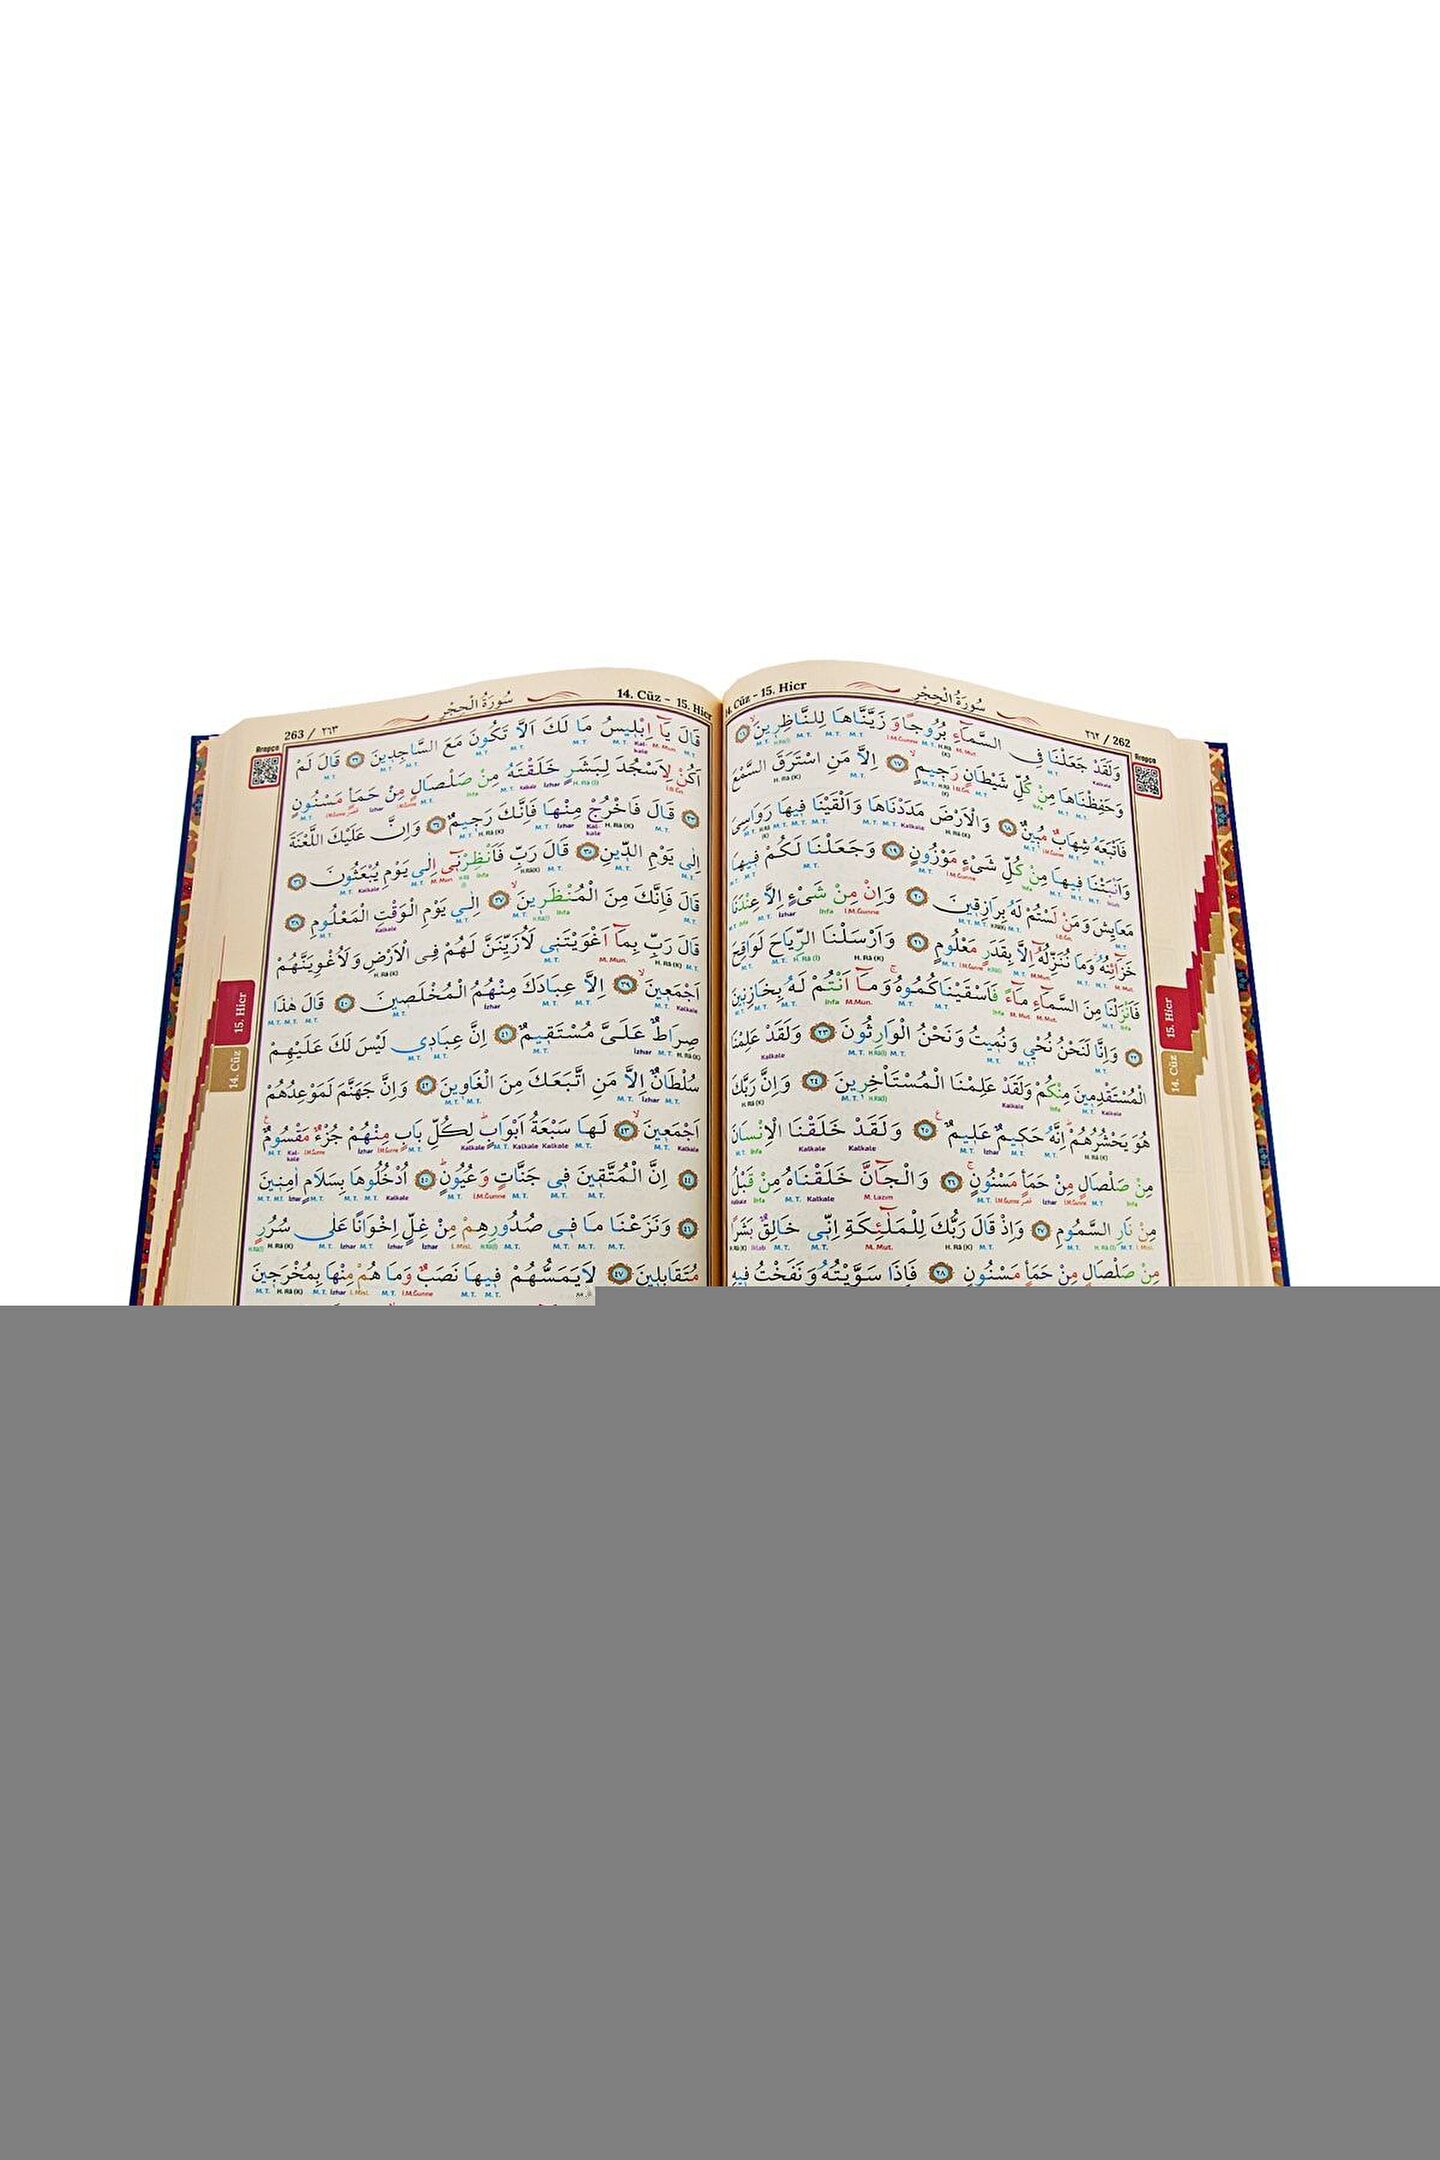 ٢٦٢ / 262
سُورَةُ الْحِجْرِ
14. Cüz - 15. Hicr
وَلَقَدْ جَعَلْنَا فِى السَّمَآءِ بُرُوجًا وَزَيَّنَّاهَا لِلنَّاظِرِينَۙ ﴿١٦﴾
وَحَفِظْنَاهَا مِنْ كُلِّ شَيْطَانٍ رَجِيمٍۙ ﴿١٧﴾ اِلَّا مَنِ اسْتَرَقَ السَّمْعَ
فَاَتْبَعَهُ شِهَابٌ مُبِينٌ ﴿١٨﴾ وَالْاَرْضَ مَدَدْنَاهَا وَاَلْقَيْنَا فِيهَا رَوَاسِىَ
وَاَنْبَتْنَا فِيهَا مِنْ كُلِّ شَىْءٍ مَوْزُونٍ ﴿١٩﴾ وَجَعَلْنَا لَكُمْ فِيهَا
مَعَايِشَ وَمَنْ لَسْتُمْ لَهُ بِرَازِقِينَ ﴿٢٠﴾ وَاِنْ مِنْ شَىْءٍ اِلَّا عِنْدَنَا
خَزَٓائِنُهُ وَمَا نُنَزِّلُهُٓ اِلَّا بِقَدَرٍ مَعْلُومٍ ﴿٢١﴾ وَاَرْسَلْنَا الرِّيَاحَ لَوَاقِحَ
فَاَنْزَلْنَا مِنَ السَّمَآءِ مَآءً فَاَسْقَيْنَاكُمُوهُۚ وَمَآ اَنْتُمْ لَهُ بِخَازِنِينَ
﴿٢٢﴾ وَاِنَّا لَنَحْنُ نُحْىِ وَنُمِيتُ وَنَحْنُ الْوَارِثُونَ ﴿٢٣﴾ وَلَقَدْ عَلِمْنَا
الْمُسْتَقْدِمِينَ مِنْكُمْ وَلَقَدْ عَلِمْنَا الْمُسْتَأْخِرِينَ ﴿٢٤﴾ وَاِنَّ رَبَّكَ
هُوَ يَحْشُرُهُمْۜ اِنَّهُ حَكِيمٌ عَلِيمٌ ﴿٢٥﴾ وَلَقَدْ خَلَقْنَا الْاِنْسَانَ
مِنْ صَلْصَالٍ مِنْ حَمَاٍ مَسْنُونٍۚ ﴿٢٦﴾ وَالْجَآنَّ خَلَقْنَاهُ مِنْ قَبْلُ
مِنْ نَارِ السَّمُومِ ﴿٢٧﴾ وَاِذْ قَالَ رَبُّكَ لِلْمَلٰٓئِكَةِ اِنِّى خَالِقٌ بَشَرًا
مِنْ صَلْصَالٍ مِنْ حَمَاٍ مَسْنُونٍ ﴿٢٨﴾ فَاِذَا سَوَّيْتُهُ وَنَفَخْتُ فِيهِ
15. Hicr
14. Cüz
14. Cüz - 15. Hicr
سُورَةُ الْحِجْرِ
263 / ٢٦٣
قَالَ يَآ اِبْلِيسُ مَا لَكَ اَلَّا تَكُونَ مَعَ السَّاجِدِينَ ﴿٣٢﴾ قَالَ لَمْ
اَكُنْ لِاَسْجُدَ لِبَشَرٍ خَلَقْتَهُ مِنْ صَلْصَالٍ مِنْ حَمَاٍ مَسْنُونٍ
﴿٣٣﴾ قَالَ فَاخْرُجْ مِنْهَا فَاِنَّكَ رَجِيمٌ ﴿٣٤﴾ وَاِنَّ عَلَيْكَ اللَّعْنَةَ
اِلٰى يَوْمِ الدِّينِ ﴿٣٥﴾ قَالَ رَبِّ فَاَنْظِرْنِىٓ اِلٰى يَوْمِ يُبْعَثُونَ ﴿٣٦﴾
قَالَ فَاِنَّكَ مِنَ الْمُنْظَرِينَۙ ﴿٣٧﴾ اِلٰى يَوْمِ الْوَقْتِ الْمَعْلُومِ ﴿٣٨﴾
قَالَ رَبِّ بِمَآ اَغْوَيْتَنِى لَاُزَيِّنَنَّ لَهُمْ فِى الْاَرْضِ وَلَاُغْوِيَنَّهُمْ
اَجْمَعِينَۙ ﴿٣٩﴾ اِلَّا عِبَادَكَ مِنْهُمُ الْمُخْلَصِينَ ﴿٤٠﴾ قَالَ هٰذَا
صِرَاطٌ عَلَىَّ مُسْتَقِيمٌ ﴿٤١﴾ اِنَّ عِبَادِى لَيْسَ لَكَ عَلَيْهِمْ
سُلْطَانٌ اِلَّا مَنِ اتَّبَعَكَ مِنَ الْغَاوِينَ ﴿٤٢﴾ وَاِنَّ جَهَنَّمَ لَمَوْعِدُهُمْ
اَجْمَعِينَۙ ﴿٤٣﴾ لَهَا سَبْعَةُ اَبْوَابٍۜ لِكُلِّ بَابٍ مِنْهُمْ جُزْءٌ مَقْسُومٌ۟
﴿٤٤﴾ اِنَّ الْمُتَّقِينَ فِى جَنَّاتٍ وَعُيُونٍۜ ﴿٤٥﴾ اُدْخُلُوهَا بِسَلَامٍ اٰمِنِينَ
﴿٤٦﴾ وَنَزَعْنَا مَا فِى صُدُورِهِمْ مِنْ غِلٍّ اِخْوَانًا عَلٰى سُرُرٍ
مُتَقَابِلِينَ ﴿٤٧﴾ لَا يَمَسُّهُمْ فِيهَا نَصَبٌ وَمَا هُمْ مِنْهَا بِمُخْرَجِينَ
15. Hicr
14. Cüz